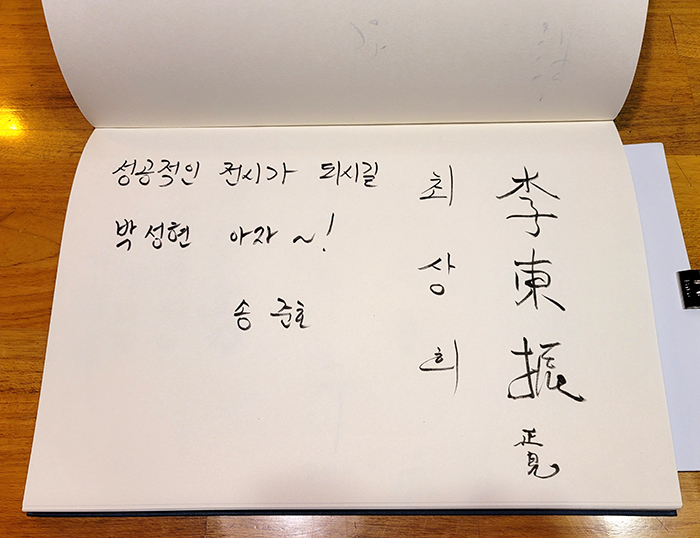 성공적인 전시가 되시길
박성현 아자~!
송준호
최상희
李東振